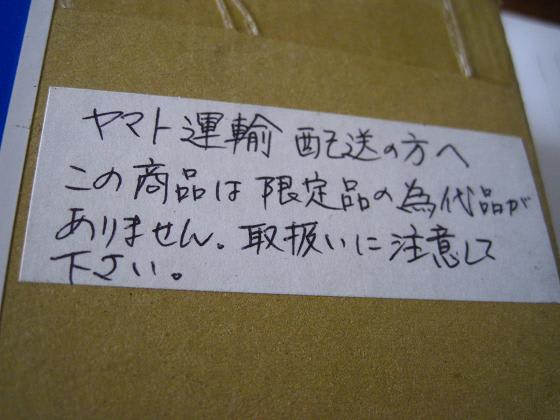 ヤマト運輸 配送の方へ
この商品は限定品の為代品が
ありません。取扱いに注意して
下さい。